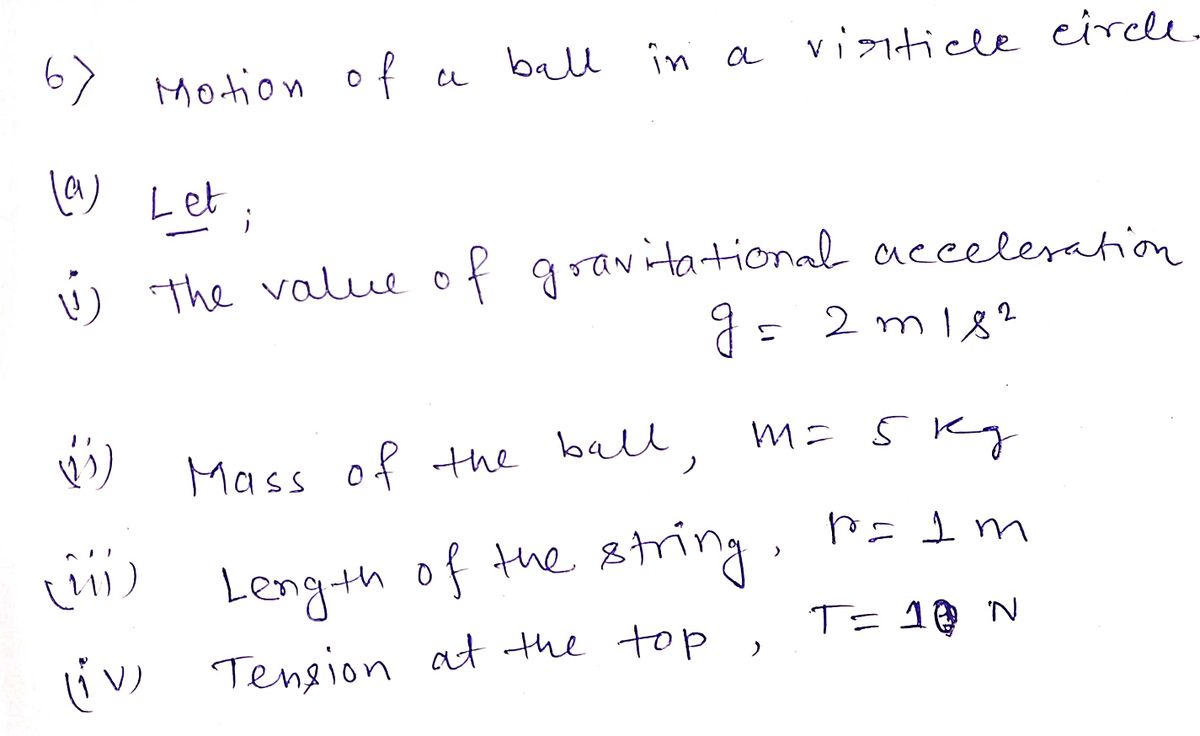 6) Motion of a ball in a virticle circle.
(a) Let;
(i) The value of gravitational acceleration
g = 2 m/s²
(ii) Mass of the ball, m = 5 kg
(iii) Length of the string, r = 1 m
(iv) Tension at the top, T = 10 N